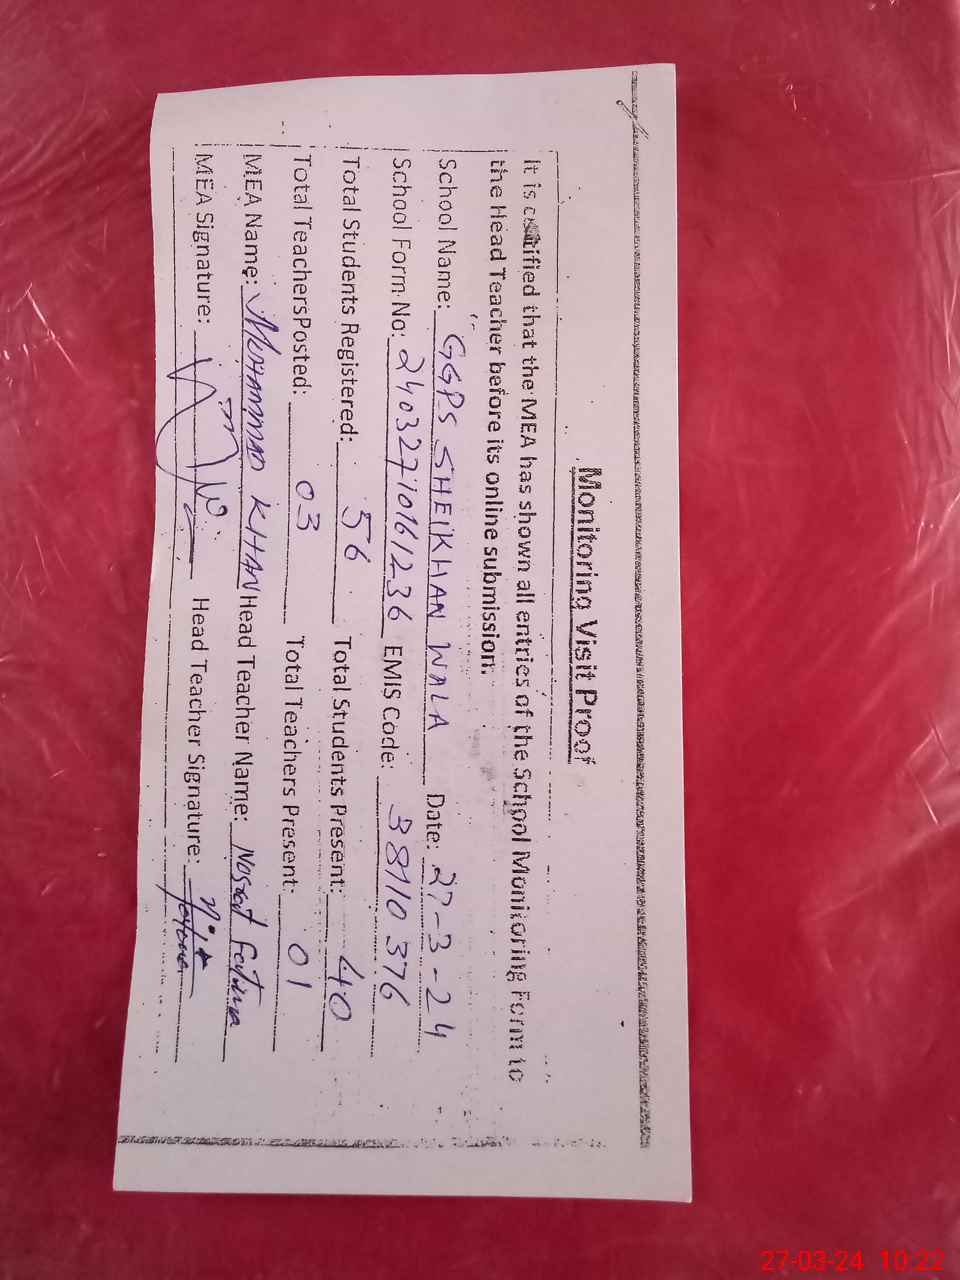 Monitoring Visit Proof
It is certified that the MEA has shown all entries of the School Monitoring Form to
the Head Teacher before its online submission.
School Name: GGPS SHEIKHAN WALA Date: 27-3-24
School Form No: 24032710161236 EMIS Code: 38110376
Total Students Registered: 56 Total Students Present: 40
Total TeachersPosted: 03 Total Teachers Present: 01
MEA Name: MUHAMMAD KHAN Head Teacher Name: Nosrat Fatima
MEA Signature: Head Teacher Signature:
27-03-24 10:22